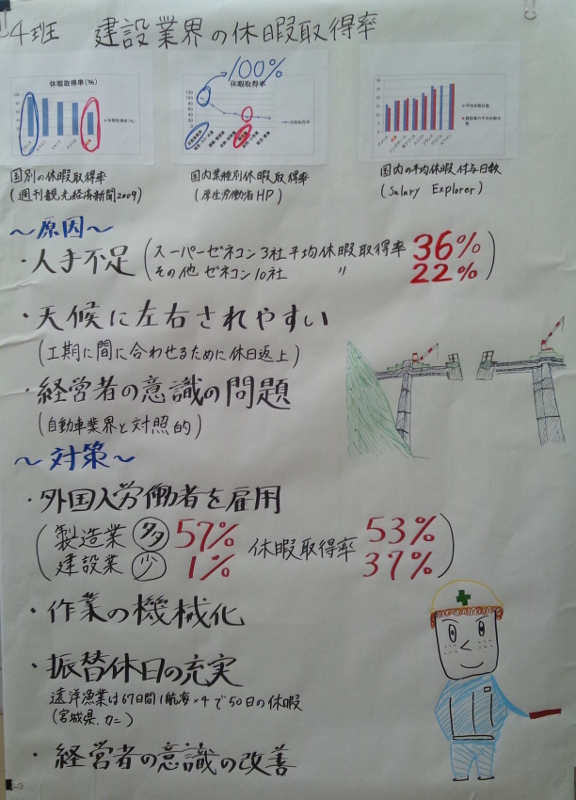 4班 建設業界の休暇取得率
休暇取得率(%)
100%
休暇取得率
国別の休暇取得率
(週刊観光経済新聞2009)
国内業種別休暇取得率
(厚生労働省HP)
国内の平均休暇付与日数
(Salary Explorer)
～原因～
・人手不足(スーパーゼネコン3社平均休暇取得率 36%
その他ゼネコン10社 〃 22%)
・天候に左右されやすい
(工期に間に合わせるために休日返上)
・経営者の意識の問題
(自動車業界と対照的)
～対策～
・外国人労働者を雇用
(製造業 多 57% 休暇取得率 53%
建設業 少 1% 37%)
・作業の機械化
・振替休日の充実
遠洋漁業は67日間1航海×4で50日の休暇
(宮城県.カニ)
・経営者の意識の改善